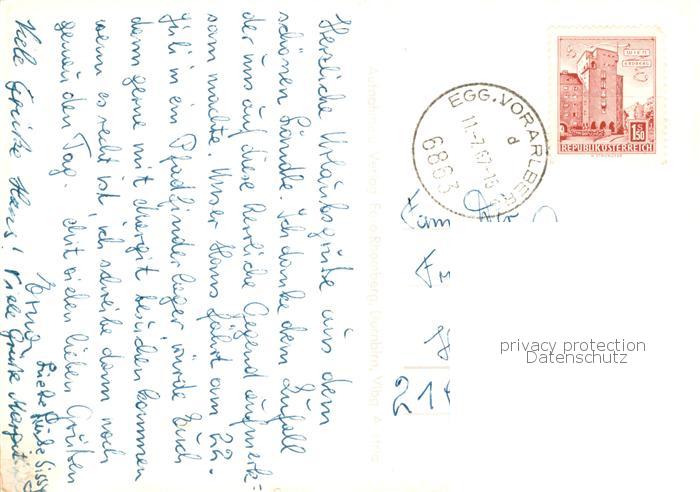 Herzliche Urlaubsgrüße aus dem
schönen Ländle. Ich danke dem Zufall
der uns auf diese herrliche Gegend aufmerk=
sam machte. Unser Hans fährt am 22.
Juli in ein Pfadfinderlager würde Euch
dann gerne mit Margit besuchen kommen
wenn es recht ist, ich schreibe dann noch
genau den Tag. Mit vielen lieben Grüßen
Erna
Viele Grüße Hans! Viele Grüße Margit
Liebe Grüße Sissy
Verlag Foto Risch-Lau, Bregenz
WIEN
ERDBERG
S
1.50
REPUBLIK ÖSTERREICH
EGG, VORARLBERG
d
11.-7.67-15
6863
Fam
214
privacy protection
Datenschutz